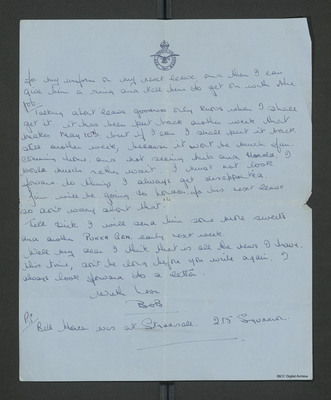 for my uniform on my next leave and then I can
give him a ring and tell him to get on with the
job.
Talking about leave goodness only knows when I shall
get it it has been put back another week that
makes May 10th, but if I can I shall put it back
another week, because it won't be much fun
coming home and not seeing and I
would much rather wait. I must not look
forward to things I always get disappointed
will be going to his next leave
so don't worry about that.
Tell Dick I will send him some more sweets
and another early next week.
Well my dear I think that is all the news I have
this time, don't be long before you write again. I
always look forward to a letter.
With love
Bob
PS
Bill was at Stradishall. 215 Squadron.
IBCC Digital Archive